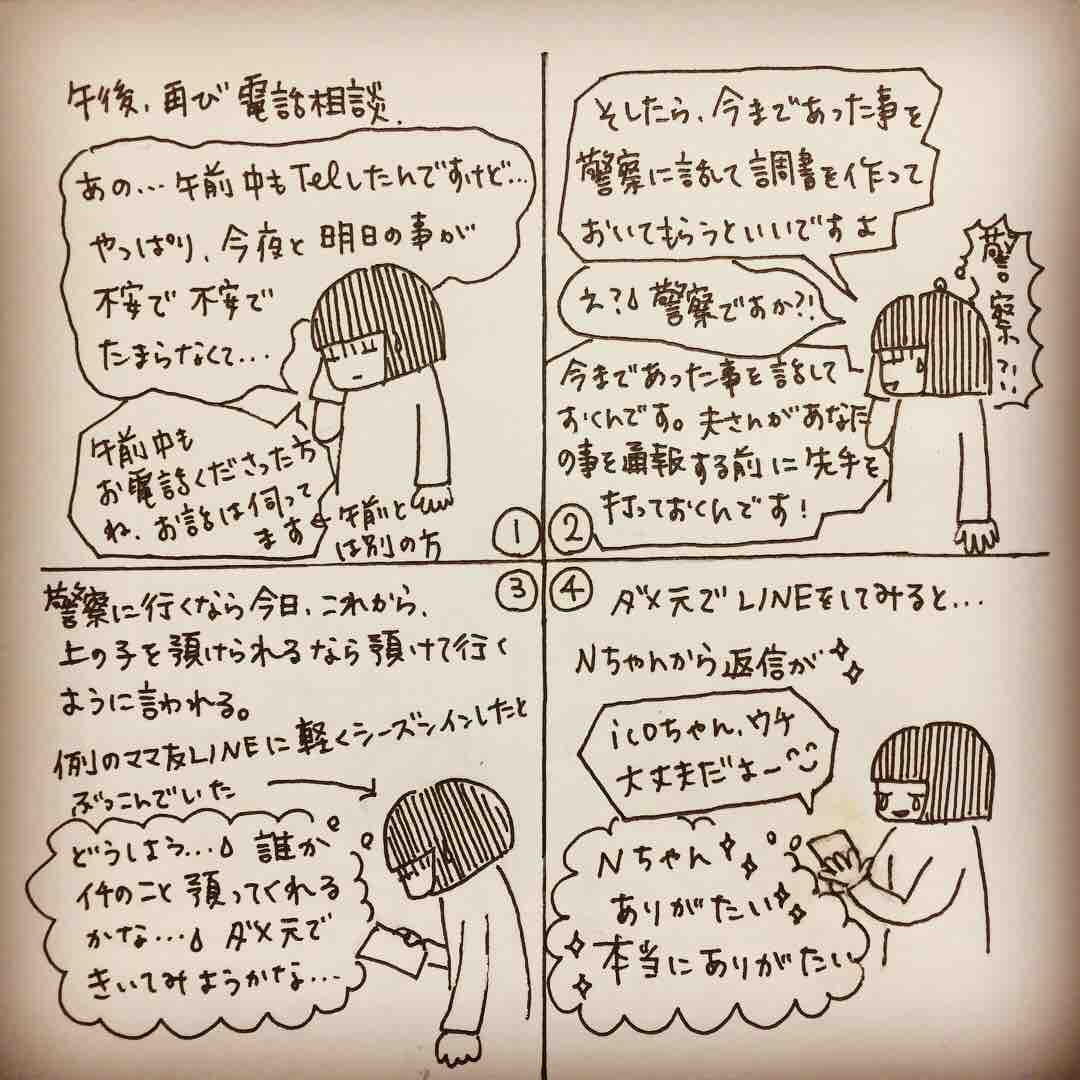 午後、再び電話相談.
あの…午前中もTelしたんですけど…
やっぱり、今夜と明日の事が
不安で不安で
たまらなくて…
午前中も
お電話くださった方
ね、お話は伺って
ます
午前と
は別の方
①
そしたら、今まであった事を
警察に話して調書を作って
おいてもらうといいですよ
え?警察ですか?!
警察?!!
今まであった事を話して
おくんです。夫さんがあなた
の事を通報する前に先手を
打っておくんです!
②
③
警察に行くなら今日、これから、
上の子を預けられるなら預けて行く
ように言われる。
例のママ友LINEに軽くシーズンインしたと
ぶっこんでいた
どうしよう…誰か
イチのこと預ってくれる
かな…ダメ元で
きいてみようかな…
④
ダメ元でLINEをしてみると…
Nちゃんから返信が
icoちゃん、ウチ
大丈夫だよー
Nちゃん
ありがたい
本当にありがたい